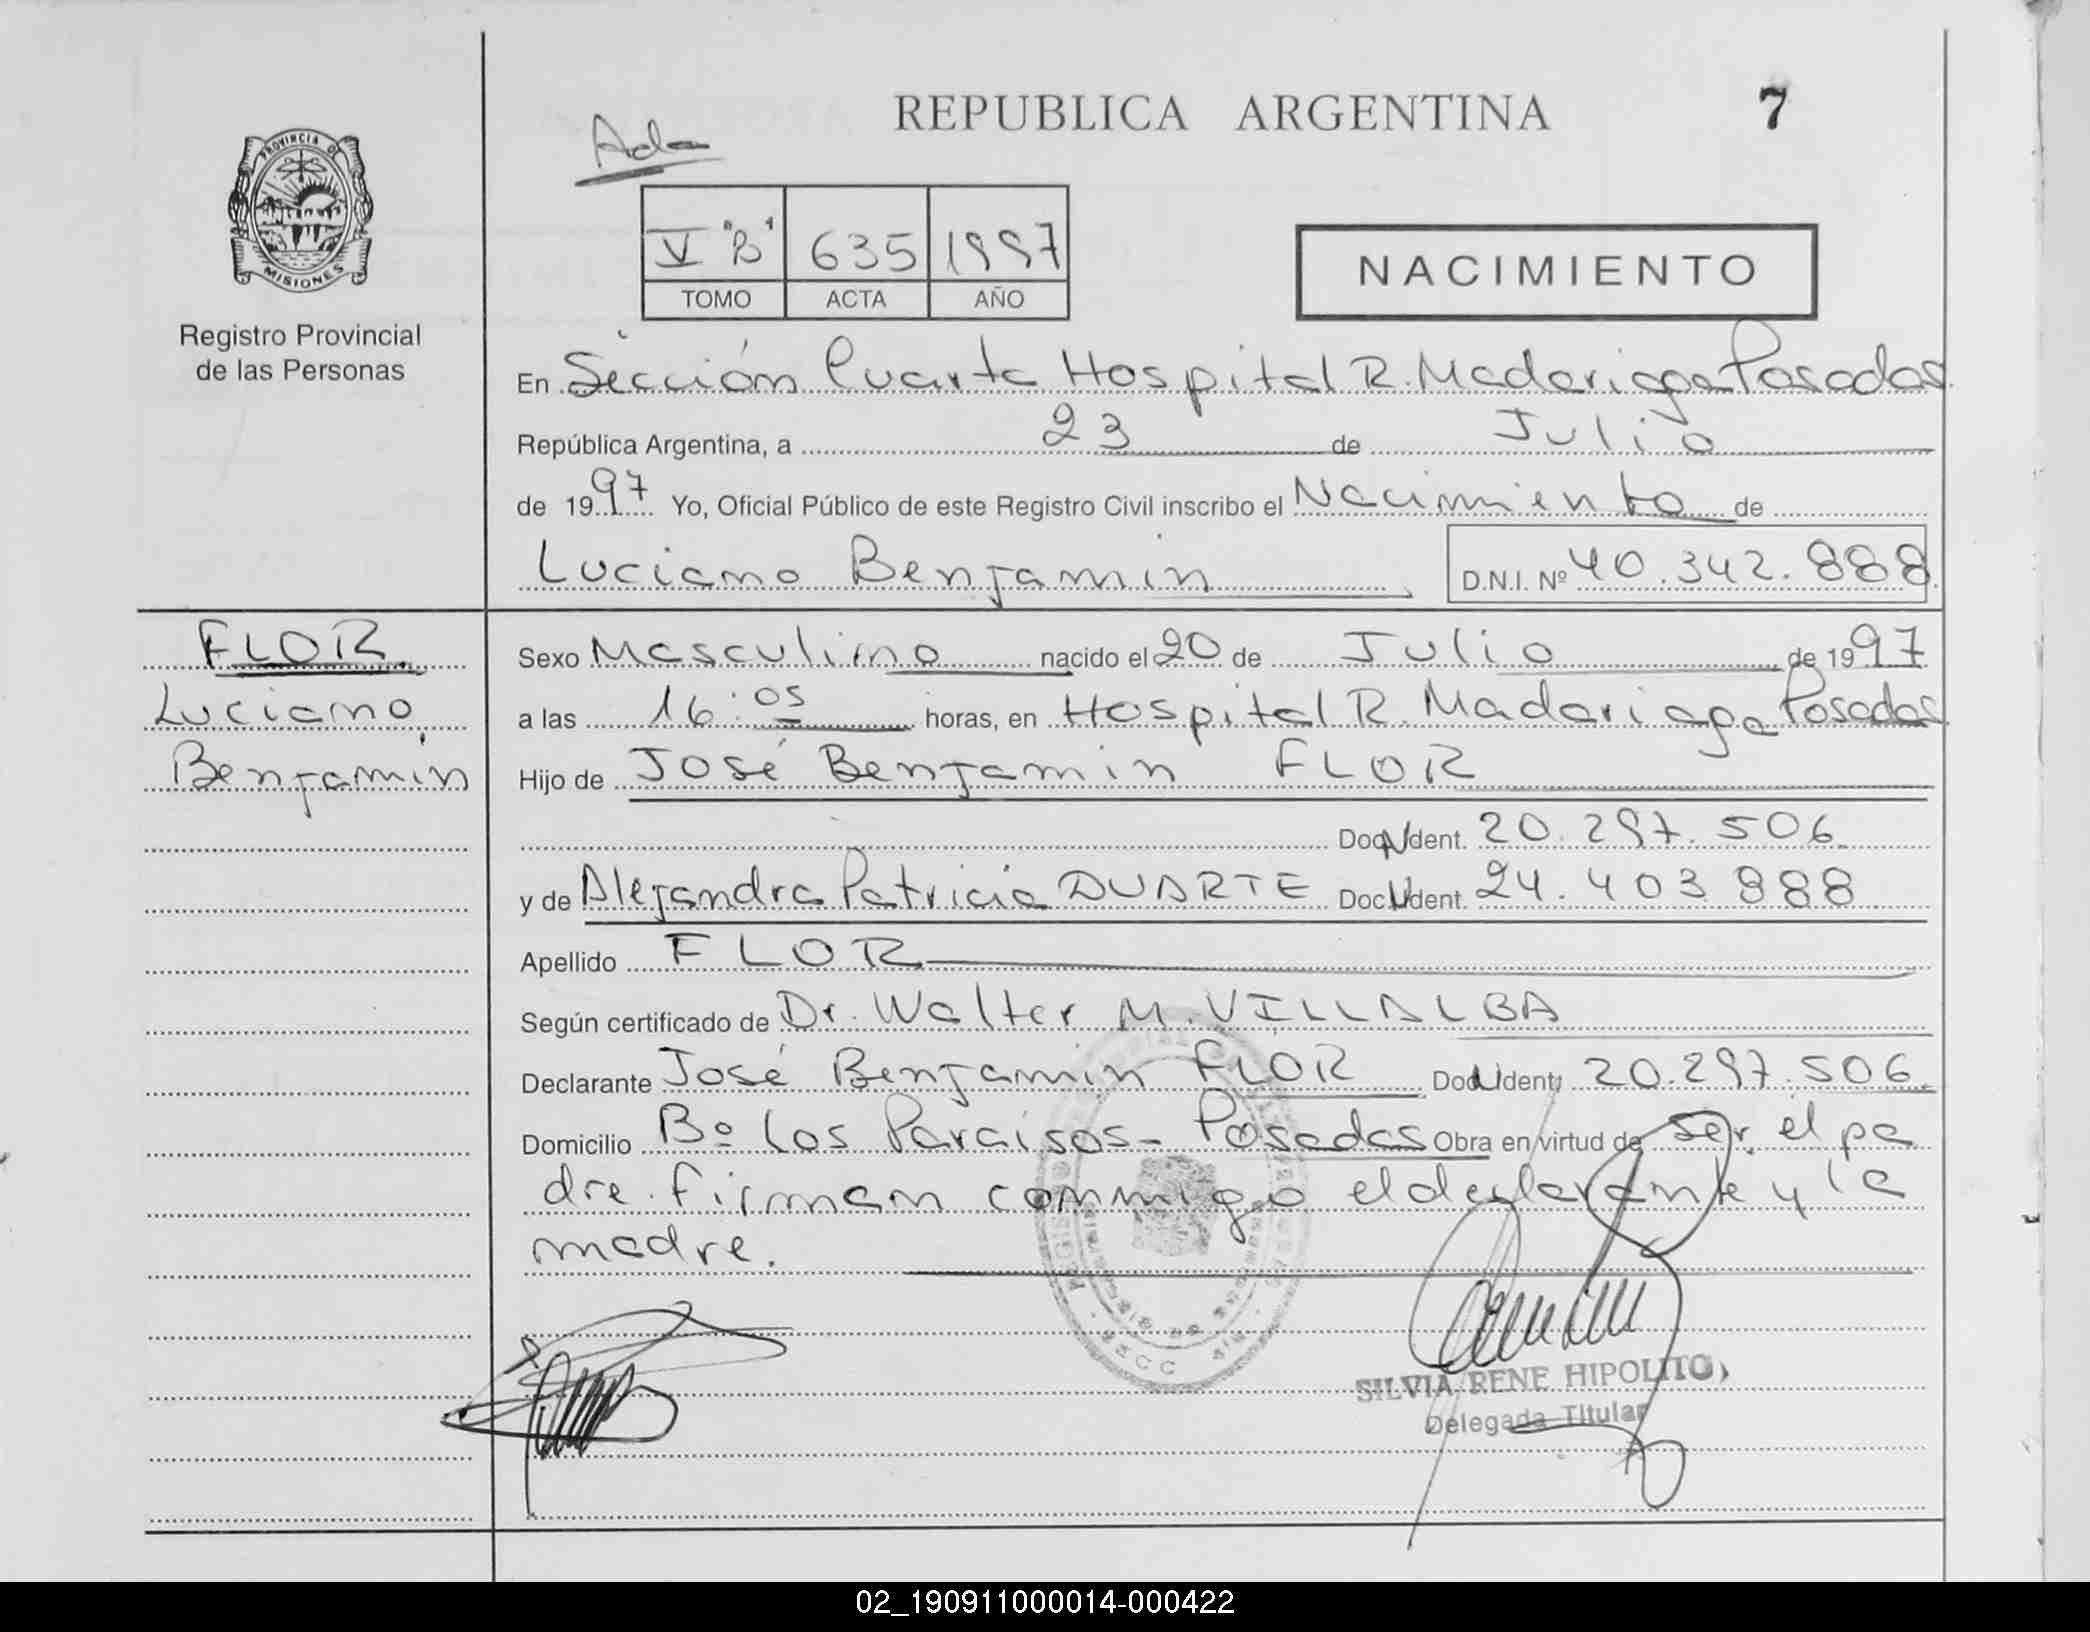 REPUBLICA ARGENTINA
7
Ada
PROVINCIA DE
MISIONES
Registro Provincial
de las Personas
V "B" 635 1997
TOMO ACTA AÑO
NACIMIENTO
En Sección Cuarta Hospital R. Madariaga Posadas
República Argentina, a 23 de Julio
de 1997 Yo, Oficial Público de este Registro Civil inscribo el Nacimiento de
Luciano Benjamin D.N.I. Nº 40.342.888
FLOR
Luciano
Benjamin
Sexo Masculino nacido el 20 de Julio de 1997
a las 16:05 horas, en Hospital R. Madariaga Posadas
Hijo de José Benjamin FLOR
Doc. Ident. 20.297.506
y de Alejandra Patricia DUARTE Doc. Ident. 24.403.888
Apellido FLOR
Según certificado de Dr. Walter M. VILLALBA
Declarante José Benjamin FLOR Doc. Ident. 20.297.506
Domicilio Bº Los Paraísos - Posadas Obra en virtud de ser el pa
dre. Firman conmigo el declarante y la
madre.
SILVIA RENE HIPOLITO
Delegada Titular
02_190911000014-000422